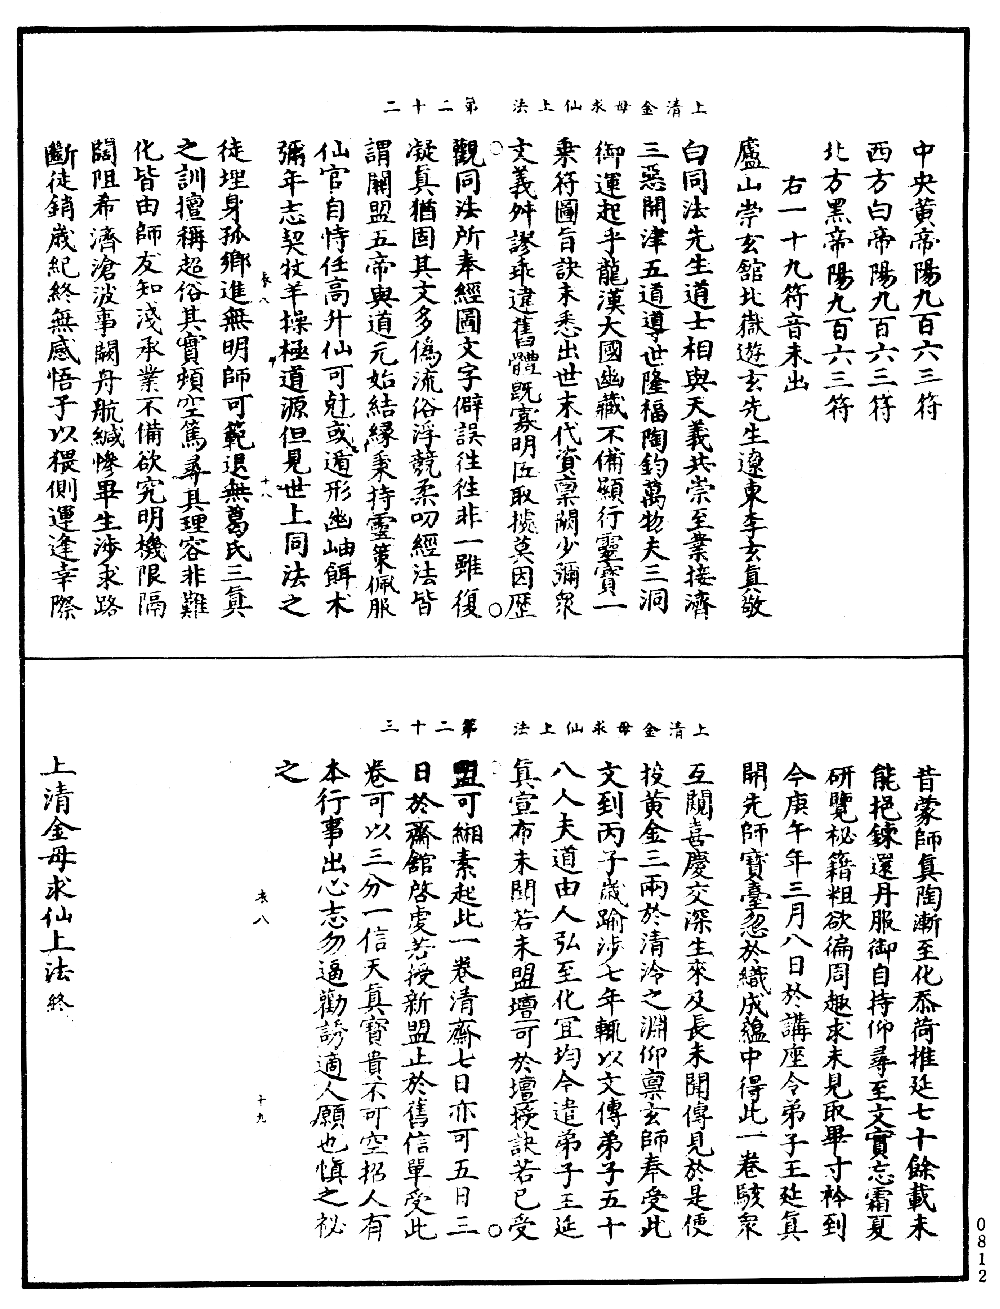 上清金母求仙上法　第二十二
中央黃帝陽九百六三符
西方白帝陽九百六三符
北方黑帝陽九百六三符
右一十九符音未出
廬山崇玄館北嶽遊玄先生遼東李玄真敬
白同法先生道士相與天義共崇至業接濟
三惡開津五道導世隆福陶鈞萬物夫三洞
御運起乎龍漢大國幽藏不備顯行靈寶一
乘符圖旨訣未悉出世末代資稟闕少彌眾
文義舛謬乖違舊體既寡明匠取據莫因歷
觀同法所奉經圖文字僻誤往往非一雖復
凝真猶固其文多偽流俗浮競柔叨經法皆
謂關盟五帝與道元始結緣秉持靈策佩服
仙官自恃任高升仙可尅或遁形幽岫餌木
彌年志契牧羊操極道源但見世上同法之
表八　十八
徒埋身孤鄉進無明師可範退無葛氏三真
之訓擅稱超俗其實頻空篤尋其理容非難
化皆由師友知淺承業不備欲究明機限隔
闊阻希濟滄波事闕舟航緘慘畢生涉求路
斷徒銷歲紀終無感悟予以猥側運逢幸際
上清金母求仙上法　第二十三
昔蒙師真陶漸至化忝荷推延七十餘載未
能挹鍊還丹服御自持仰尋至文實忘霜夏
研覽秘籍粗欲徧周趣求未見取畢寸衿到
今庚午年三月八日於講座令弟子王延真
開先師寶臺忽於織成蘊中得此一卷駭眾
互闚喜慶交深生來及長未聞傳見於是便
投黃金三兩於清泠之淵仰稟玄師奉受此
文到丙子歲踰涉七年輒以文傳弟子五十
八人夫道由人弘至化冝均今遣弟子王延
真宣布未聞若未盟壇可於壇授訣若已受
盟可緗素起此一卷清齋七日亦可五日三
日於齋館啓虔若授新盟止於舊信單受此
卷可以三分一信天真寶貴不可空招人有
本行事出心志勿逼勸誘適人願也慎之祕
之
表八　十九
上清金母求仙上法終
0812